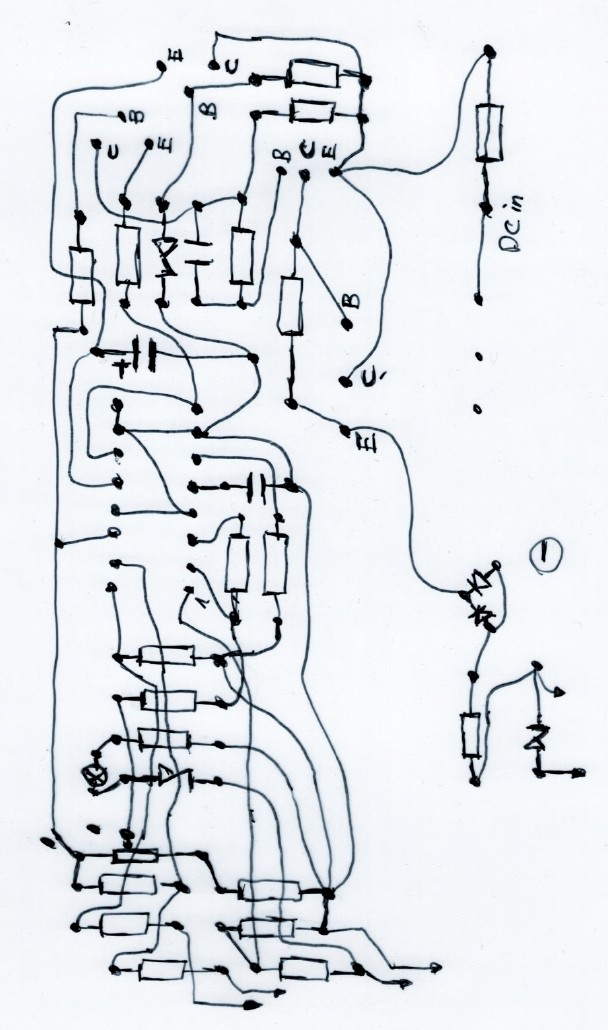 E
C
B
B
C
E
B
C
E
DC in
B
C
+
E
1